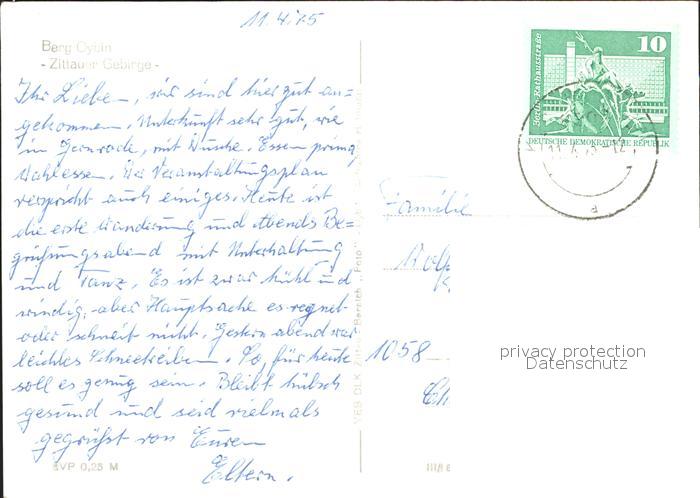 11.4.75
Berg Oybin
- Zittauer Gebirge -
Ihr Lieben, wir sind hier gut an-
gekommen. Unterkunft sehr gut, wie
in Gernrode, mit Dusche. Essen prima,
Wahlessen. Der Veranstaltungsplan
verspricht auch einiges. Heute ist
die erste Wanderung und abends Be-
grüßungsabend mit Unterhaltung
und Tanz. Es ist zwar kühl und
windig, aber Hauptsache es regnet
oder schneit nicht. Gestern abend war
leichtes Schneetreiben. So, für heute
soll es genug sein. Bleibt hübsch
gesund und seid vielmals
gegrüßt von Euren
Eltern.
EVP 0,25 M
VEB DLK Zittau Bereich „Foto“
10
Berlin, Rathausstraße
DEUTSCHE DEMOKRATISCHE REPUBLIK
Familie
1058
privacy protection
Datenschutz